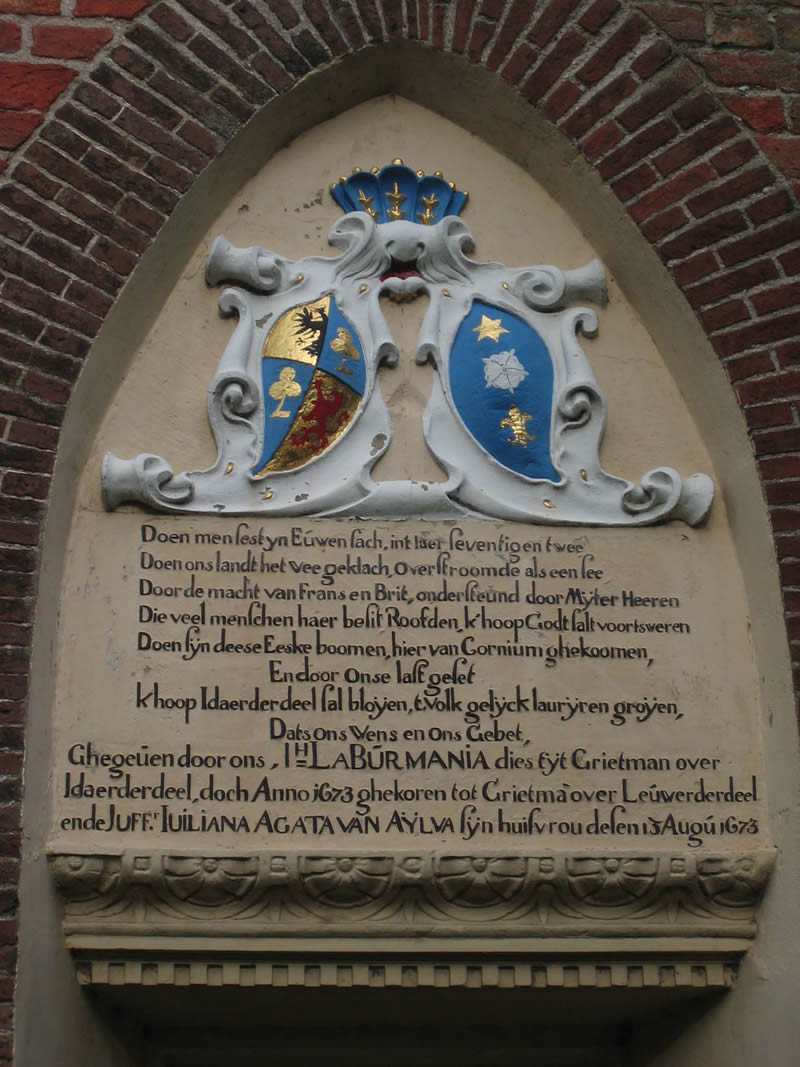 Doen men sestyn Eúwen sach, int Iaer seventig en twee
Doen ons landt het vee geklach, overstroomde als een see
Door de macht van Frans en Brit, ondersteúnd door Mÿter Heeren
Die veel menschen haer besit Roofden, k'hoop Godt salt voortsweren
Doen sÿn deese Eeske boomen, hier van Cornium ghekoomen,
En door onse last geset
k'hoop Idaerderdeel sal bloÿen, t'volk gelÿck laurÿren groÿen,
Dats ons wens en ons Gebet,
Ghegeúen door ons, IH= LaBÚRMANIA dies tÿt Grietman over
Idaerderdeel, doch Anno 1673 ghekoren tot Grietmā over Leúwerderdeel
ende JUFFr. IUILIANA AGATA VAN AŸLVA sÿn huisvrou desen 13 Augú 1673